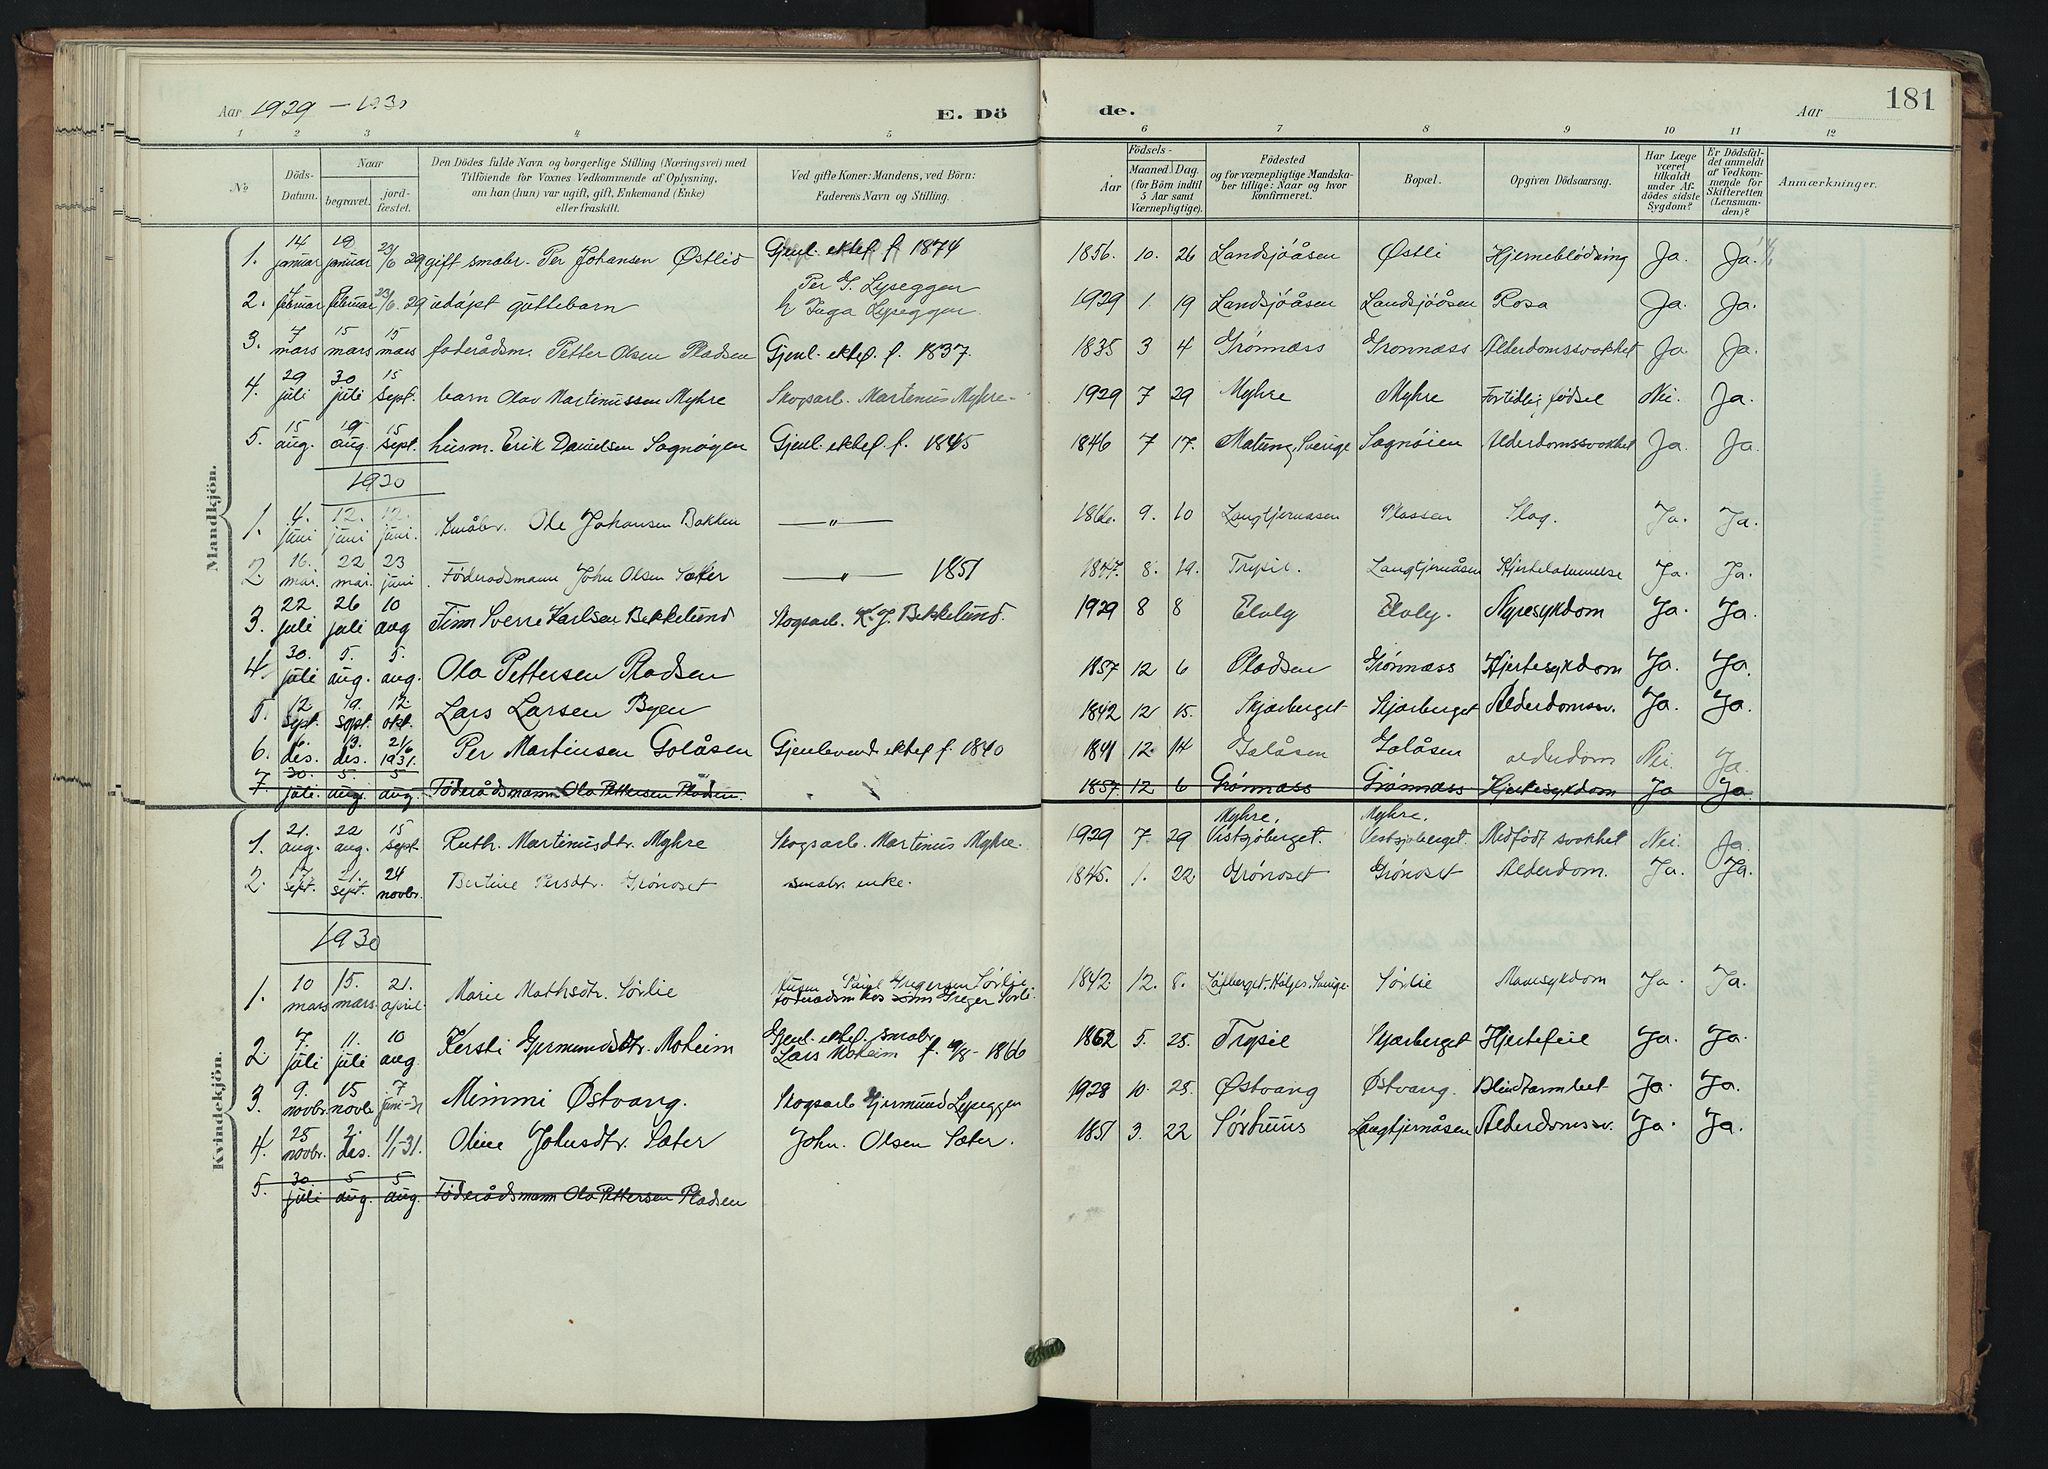 Aar 1929 – 1930
E. Dö
de.
Aar
181
1 2 3 4 5 6 7 8 9 10 11 12
№
Döds-Datum.
Naar
begravet.
jord-fæstet.
Den Dödes fulde Navn og borgerlige Stilling (Næringsvei) med
Tilföiende for Voxnes Vedkommende af Oplysning,
om han (hun) var ugift, gift, Enkemand (Enke)
eller fraskilt.
Ved gifte Koner: Mandens, ved Börn:
Faderens Navn og Stilling.
Födsels-
Aar
Maaned. Dag.
(for Börn indtil
5 Aar samt
Værnepligtige).
Födested
og for værnepligtige Mandska-
ber tillige: Naar og hvor
konfirmeret.
Bopæl.
Opgiven Dödsaarsag.
Har Læge
været
tilkaldt
under Af-
dödes sidste
Sygdom?
Er Dödsfal-
det anmeldt
af Vedkom-
mende for
Skifteretten
(Lensman-
den)?
Anmærkninger.
Mandkjön.
1. 14 januar 19 januar 23/6 29 gift smabr. Per Johansen Østlid Gjenl. ektef. f. 1874 1856. 10. 26 Landsjøåsen Østli Hjerneblödning Ja. Ja.
2. februar februar 23/6 29 udöpt guttebarn Per G. Lyseggen h Inga Lyseggen. 1929 1. 19 Landsjøåsen Landsjøåsen Rosa Ja. Ja.
3. 7 mars 15 mars 15 mars foderådsm. Petter Olsen Pladsen Gjenl. ektef. f. 1837. 1835 3 4 Grønnæss Grønnæss Alderdomssvakhet Ja Ja.
4. 29 juli 30 juli 15 sept. barn Olav Martinussen Myhre Skogsarb. Martinus Myhre. 1929 7 29 Myhre Myhre Fortidlig födsel Nei. Ja.
5. 15 aug. 19 aug. 15 sept. husm. Erik Danielsen Sagnøyen Gjenl. ektef. f. 1845 1846 7 17. Matung, Sverige Sagnöien Alderdomssvakhet Ja Ja.
1930
1. 4. juni 12. juni 12. juni. Småbr. Ole Johansen Bakken —"— 1866. 9. 10 Langtjernåsen Plassen Slag. Ja. Ja.
2 16. mai. 22 mai. 23 juni Föderadsmann John Olsen Sæter —"— 1851 1847. 8. 19. Trysil. Langtjernåsen Hjertelammelse Ja. Ja.
3. 22 juli 26 juli 10 aug Finn Sverre Karlsen Bekkelund Skogsarb. K. J. Bekkelund. 1929 8 8 Elvly Elvly. Nyresykdom Ja. Ja.
4. 30. juli 5. aug. 5. aug. Ola Pettersen Pladsen 1857 12 6 Pladsen Grønnæss Hjertesykdom Ja. Ja.
5. 12 sept. 19. sept. 12. okt. Lars Larsen Byen 1842 12 15. Skjærberget Skjærberget Alderdomssv. Ja. Ja.
6. 6. des. 13. des. 21/6 1931. Per Martinsen Golåsen Gjenlevende ektef f. 1840 1841 12. 14 Galåsen Galåsen alderdom Nei. Ja.
7. 30. juli. 5. aug. 5 aug. Föderådsmann Ola Pettersen Pladsen. 1857. 12 6 Grønnæss Grønnæss Hjertesykdom Ja Ja.
Kvindekjön.
1. 21. aug. 22 aug. 15 sept. Ruth. Martinusdtr. Myhre Skogsarb. Martinus Myhre. 1929 7. 29 Myhre, Vestsjøberget. Myhre, Vestsjøberget. Medfödt svakhet Nei. Ja.
2. 17. sept. 21. sept 24 novbr. Bertine Persdtr. Grønoset smabr. enke. 1845. 1. 22 Grönoset Grönoset Alderdom. Ja. Ja.
1930
1. 10 mars 15. mars. 21. april Marie Mathsdtr. Sørlie Gregersen Sørlie. föderadsm hos Greger Sørli 1842 12. 8. Höljes. Sverige. Sørlie Mavesykdom Ja. Ja.
2. 7. juli 11. juli 10 aug. Kersti Gjermundsdtr. Moheim Gjenl. ektef. smabr. Lars Moheim f. 1866 1862 5. 25. Trysil Skjærberget Hjertefeil Ja. Ja.
3. 9. novbr. 15 novbr. 7 juni-31 Mimmi Østvang. Skogsarb Gjermund Lyseggen 1928 10. 25. Østvang Østvang. Blindtarmbet. Ja. Ja.
4. 25 novbr. 2. des. 1/1-31. Oline Johnsdtr. Sæter John. Olsen Sæter. 1851 3. 22 Sörhuus Langtjernåsen Alderdomssv. Ja. Ja.
5. 30. juli 5 aug. 5 aug. Föderådsmann Ola Pettersen Pladsen